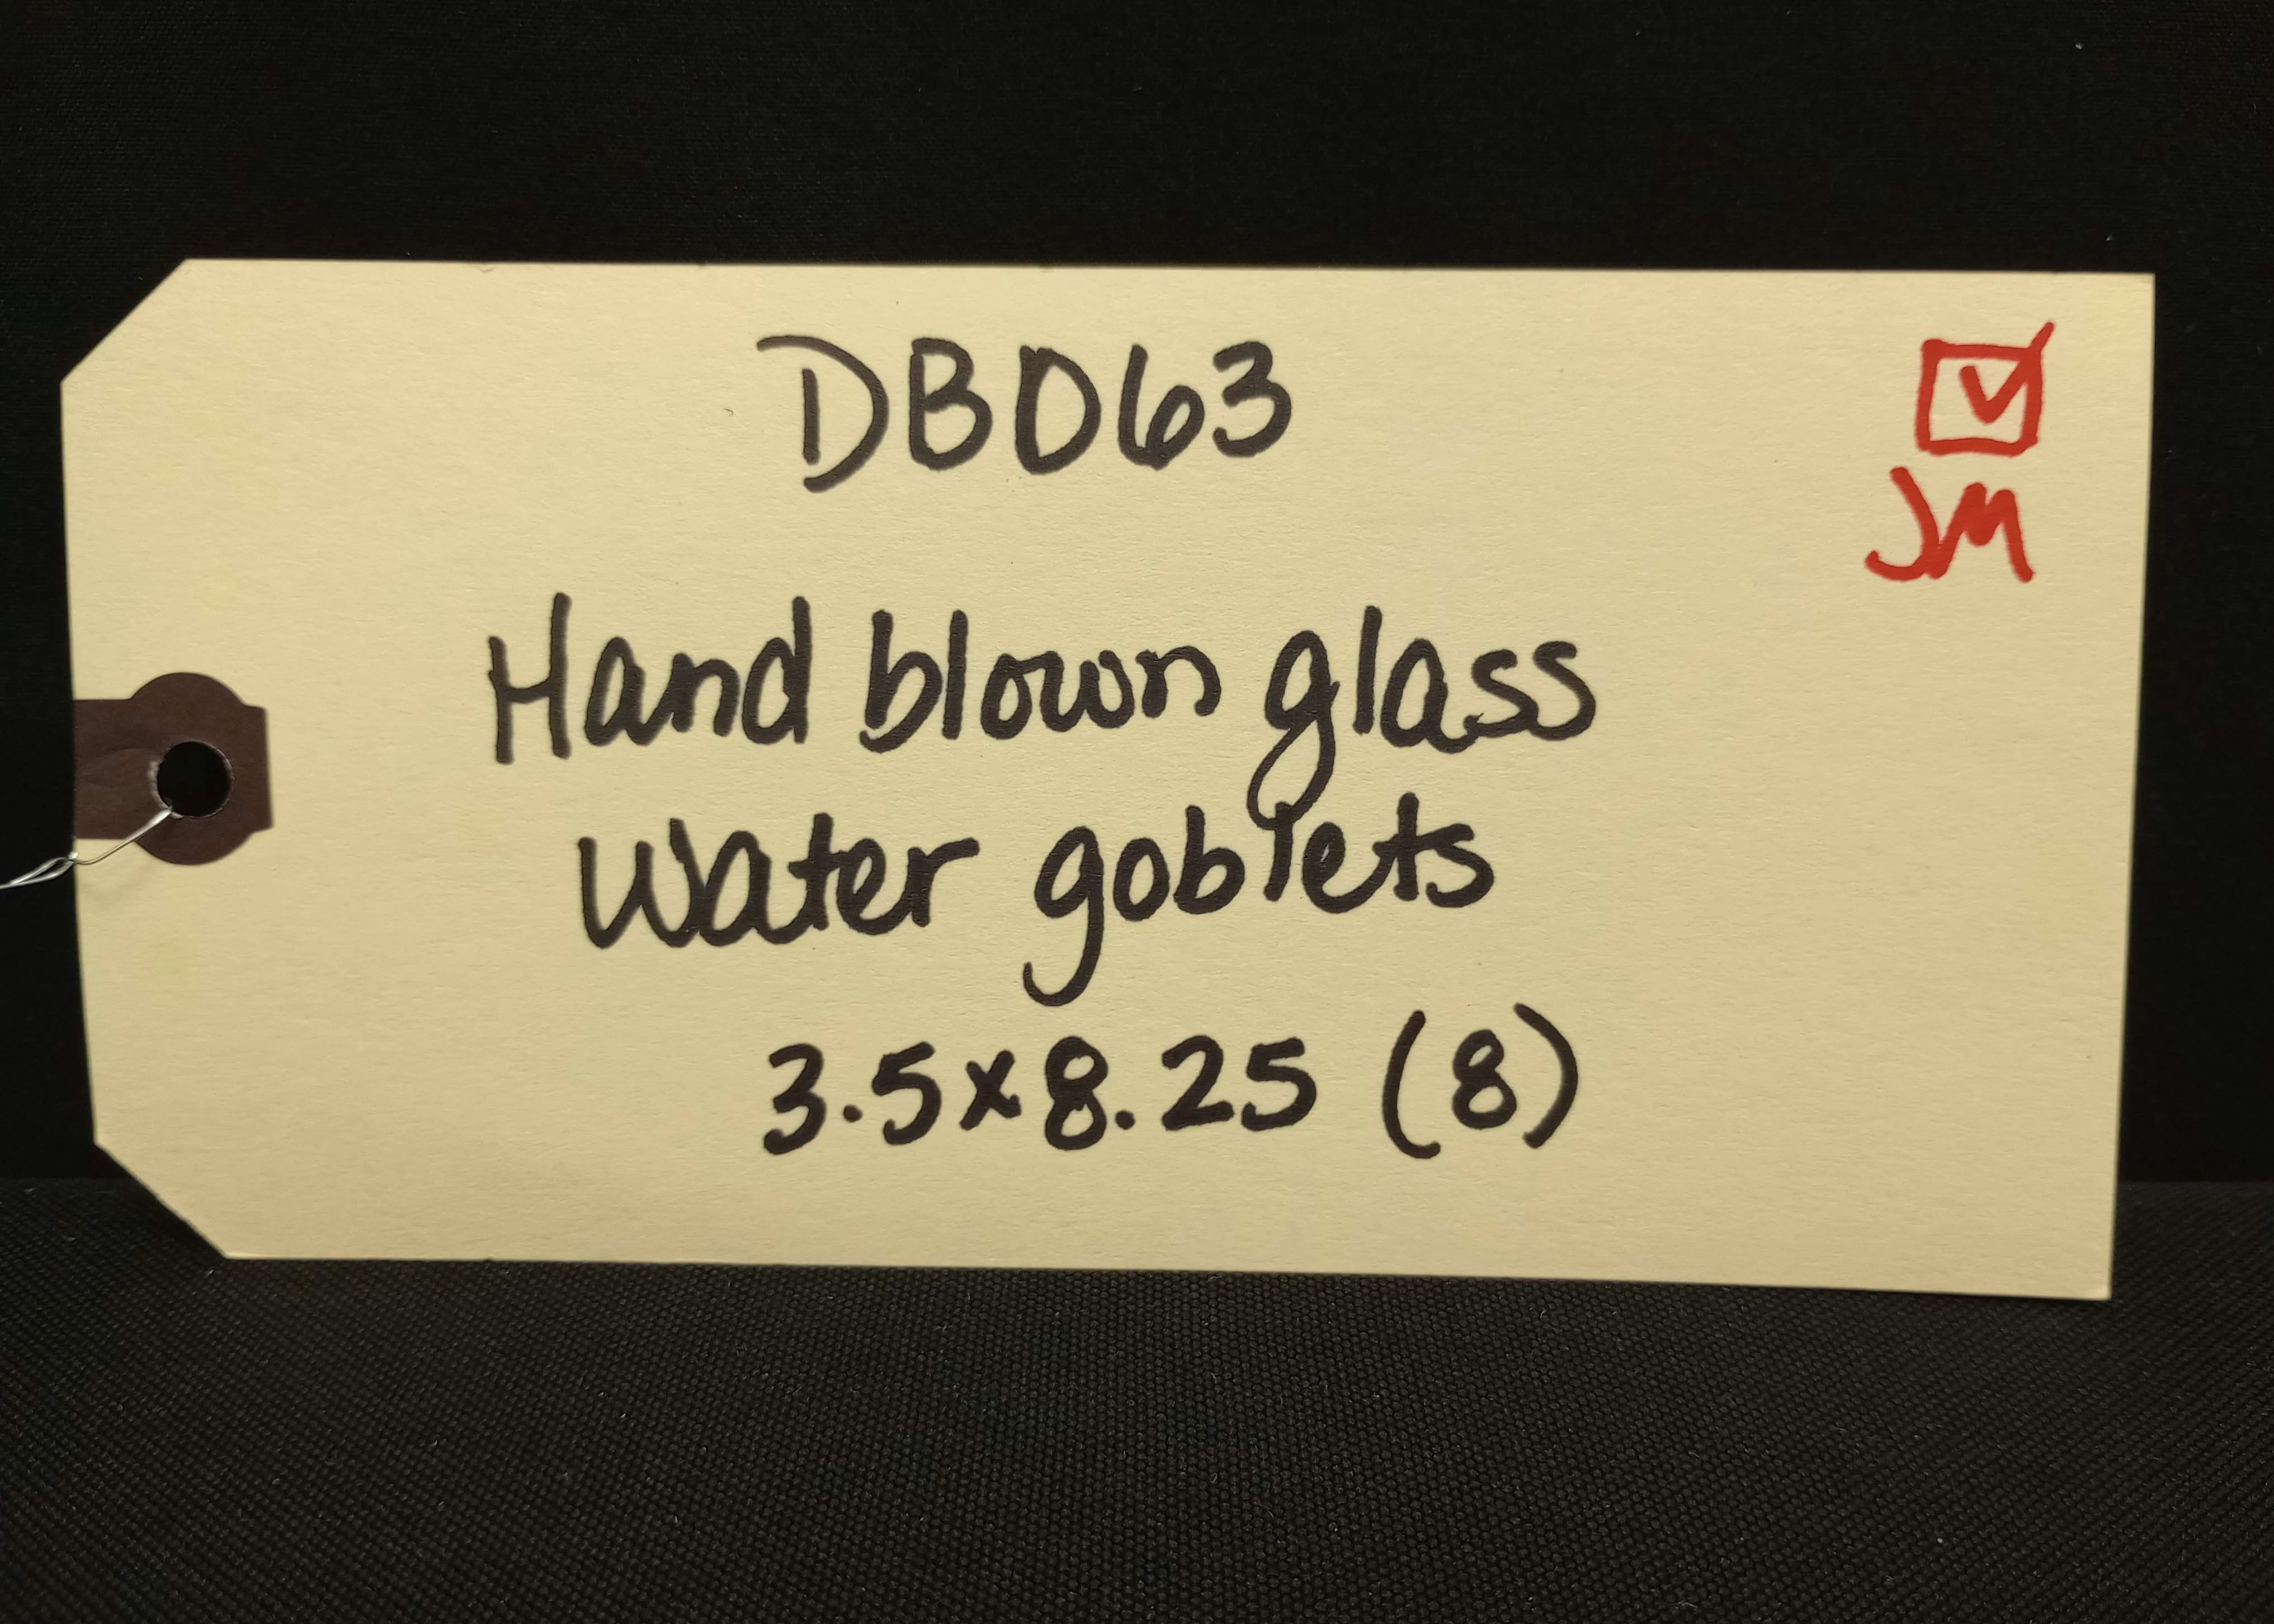 DB063
☑
JM
Hand blown glass
Water goblets
3.5x8.25 (8)